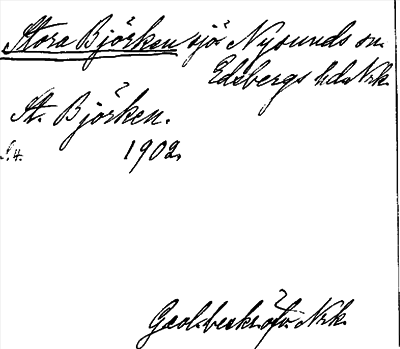 Stora Björken sjö Nysunds sn.
Edsbergs hd. Nrk.
St. Björken.
S. 4. 1902.
Geol. beskr. öfv. Nrk.